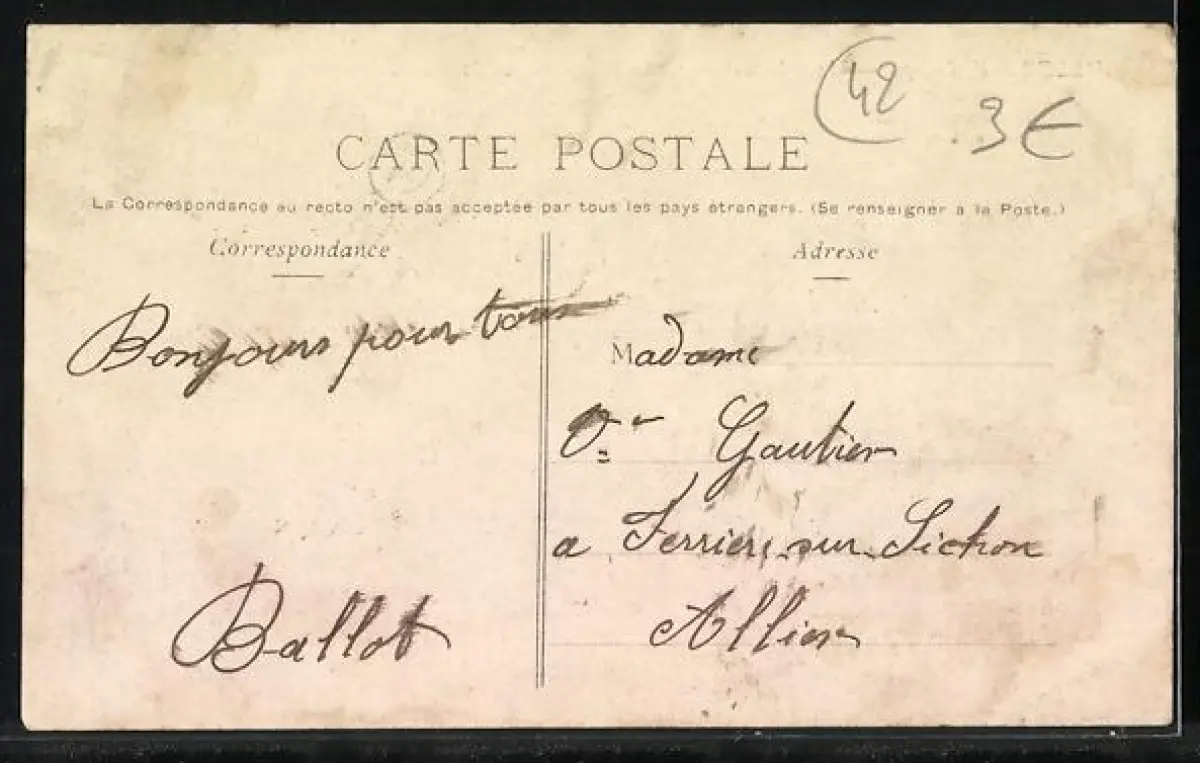 42
3€
CARTE POSTALE
La Correspondance au recto n'est pas acceptée par tous les pays étrangers. (Se renseigner à la Poste.)
Correspondance
Adresse
Bonjours pour tous
Ballot
Madame
Gautier
a Ferrieres sur Sichon
Allier